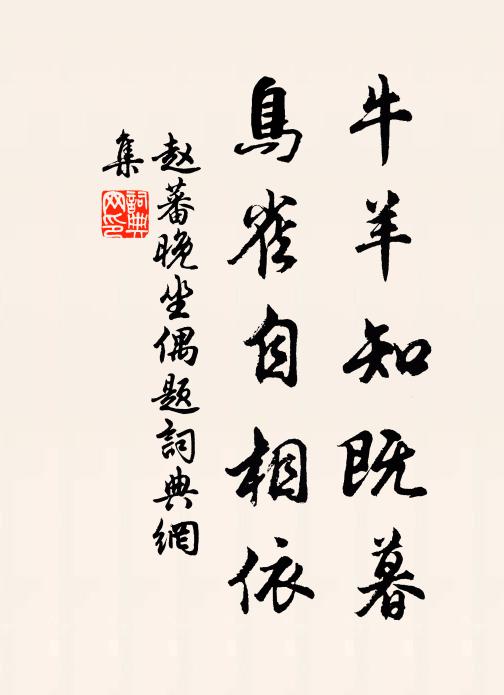 牛羊知既暮
鳥雀自相依
赵蕃晚坐偶题詞典網
集
詞典
网印